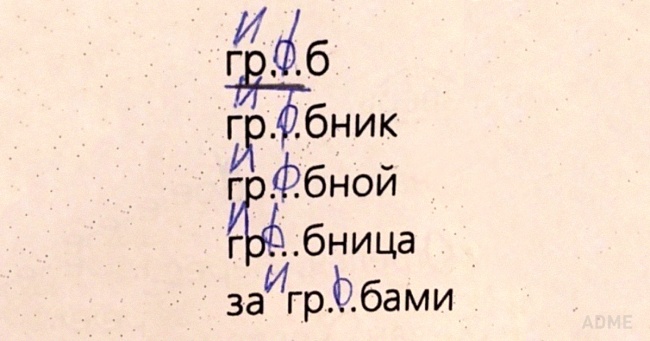 и
гр...б
и
гр...бник
и
гр...бной
и
гр...бница
и
за гр...бами
ADME